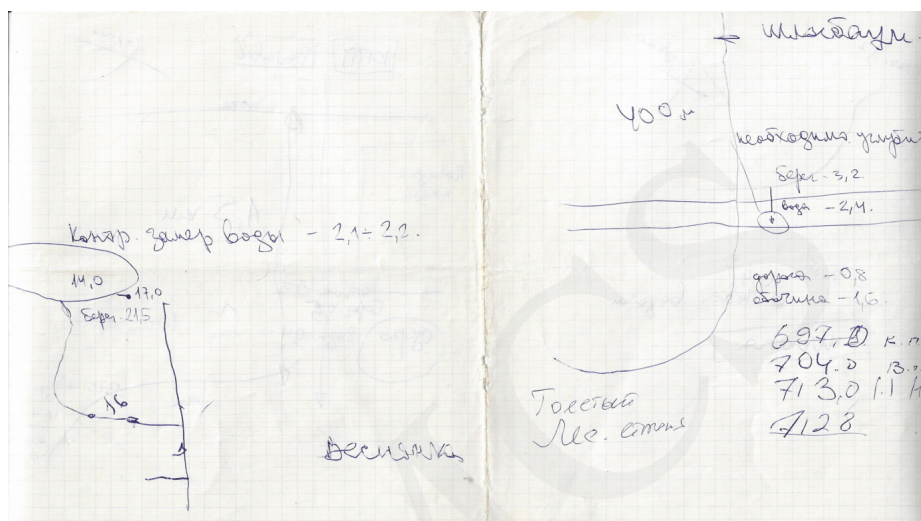 Контр. замер воды – 2,1÷2,2.
14,0
17,0
берег 21,5
1,6
Веснянка
шлагбаум
400 м
необходимо углуби
берег – 3,2
вода – 2,4.
дорога – 0,8
обочина – 1,6
704.0
713,0
7128
Толстый
Лес.